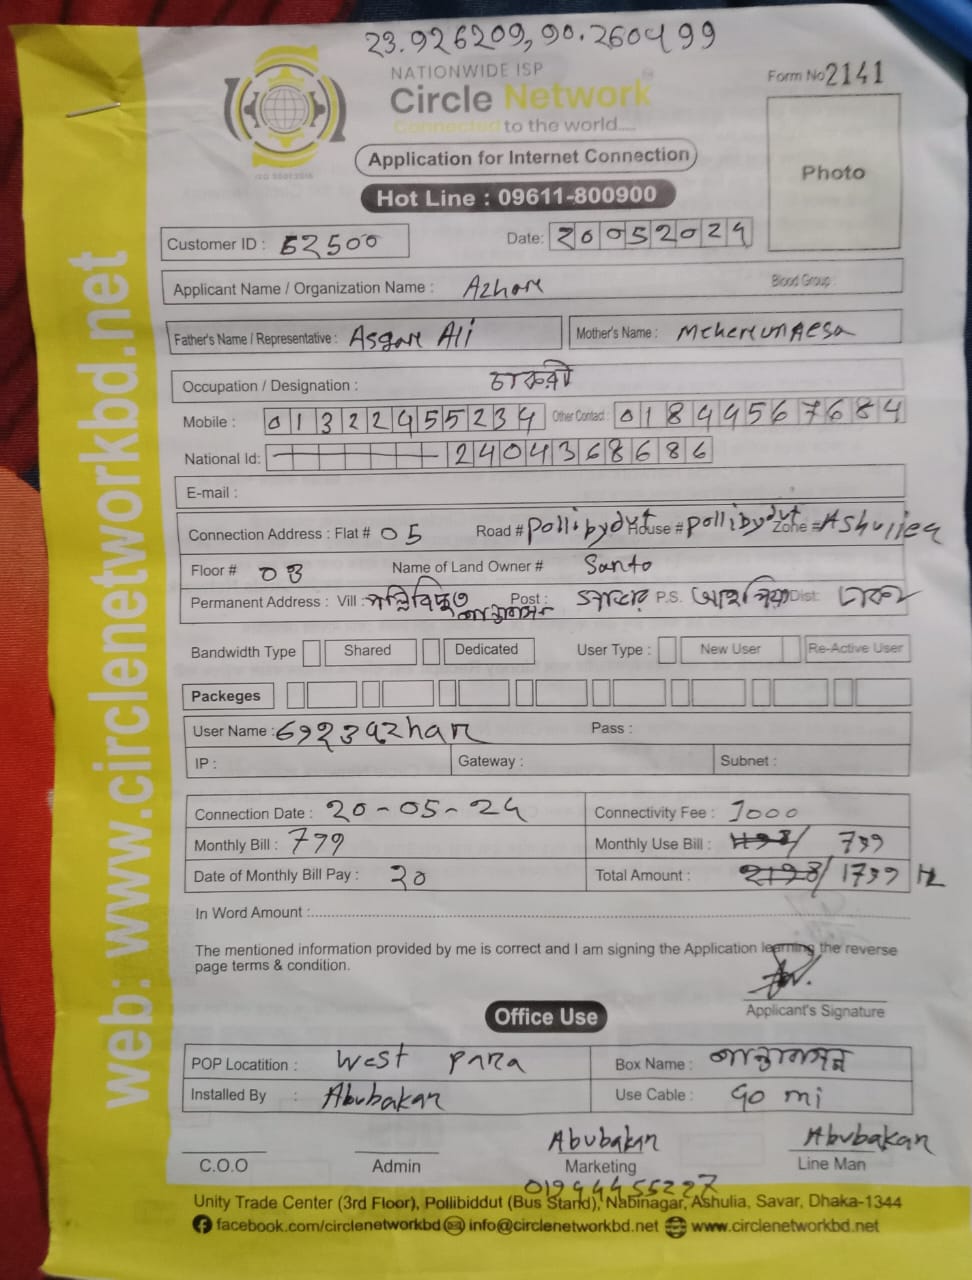 23.926209, 90.260499
NATIONWIDE ISP
Form No 2141
Circle Network
Connected to the world....
Application for Internet Connection
Photo
Hot Line : 09611-800900
Customer ID : 52500
Date: 20052024
Applicant Name / Organization Name : Azhar
Blood Group :
Father's Name / Representative : Asgar Ali
Mother's Name :
Occupation / Designation : চাকরী
Mobile : 01322455234 Other Contact : 01844567684
National Id: 2404368686
E-mail :
Connection Address : Flat # 05 Road # pollibydut House # pollibydut Zone =
Floor # 03 Name of Land Owner # Santo
Permanent Address : Vill : Post : P.S. Dist: ঢাকা
Bandwidth Type Shared Dedicated User Type : New User Re-Active User
Packeges
User Name : 6923azhar Pass :
IP : Gateway : Subnet :
Connection Date : 20-05-24 Connectivity Fee : 1000
Monthly Bill : 799 Monthly Use Bill : 799
Date of Monthly Bill Pay : 20 Total Amount : 1799
In Word Amount :
The mentioned information provided by me is correct and I am signing the Application learning the reverse
page terms & condition.
Applicant's Signature
Office Use
POP Locatition : West para Box Name :
Installed By : Abubakar Use Cable : 90 mi
Abubakar Abubakar
C.O.O Admin Marketing Line Man
01944455227
Unity Trade Center (3rd Floor), Pollibiddut (Bus Stand), Nabinagar, Ashulia, Savar, Dhaka-1344
facebook.com/circlenetworkbd info@circlenetworkbd.net www.circlenetworkbd.net
web: www.circlenetworkbd.net